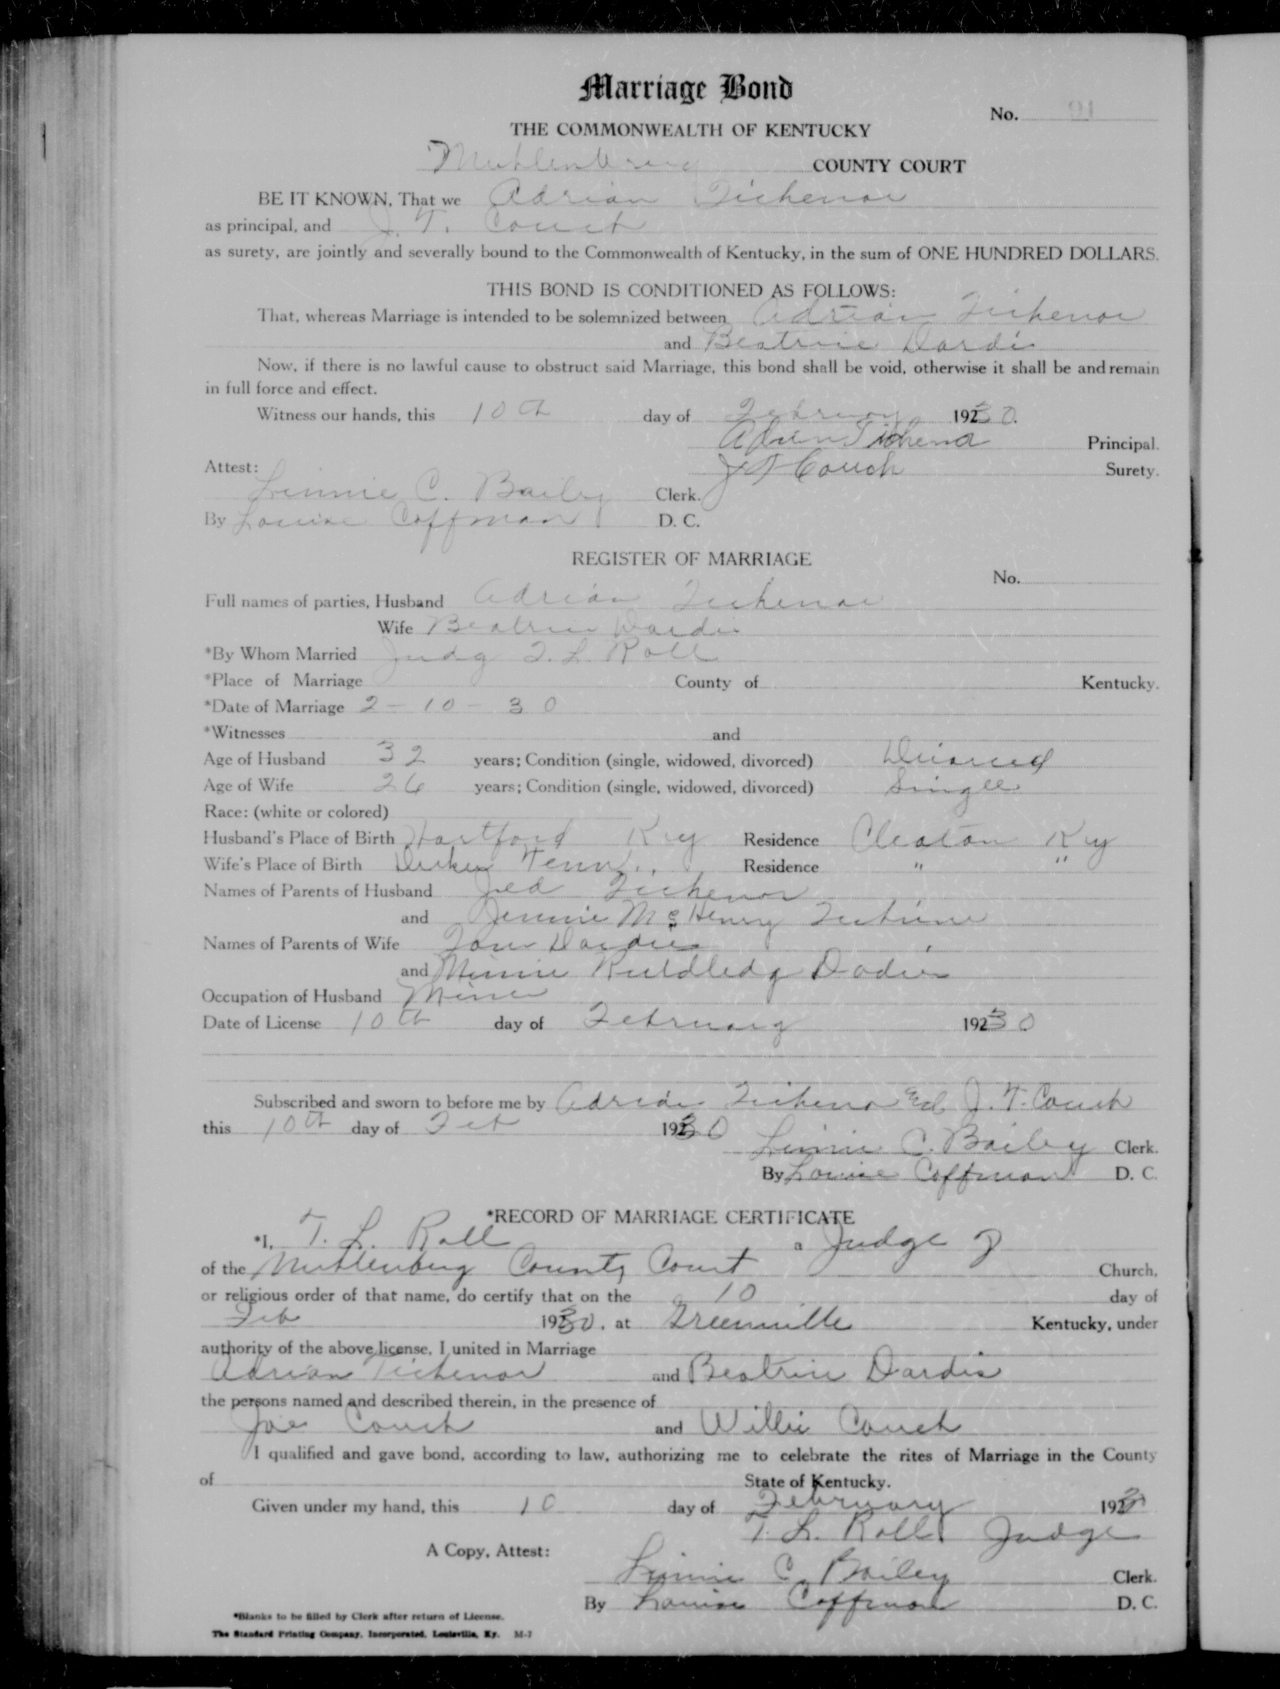 Marriage Bond
No.
THE COMMONWEALTH OF KENTUCKY
Muhlenberg COUNTY COURT
BE IT KNOWN, That we Adrian Tichenor
as principal, and J. T. Couch
as surety, are jointly and severally bound to the Commonwealth of Kentucky, in the sum of ONE HUNDRED DOLLARS.
THIS BOND IS CONDITIONED AS FOLLOWS:
That, whereas Marriage is intended to be solemnized between Adrian Tichenor
and Beatrice Dardis
Now, if there is no lawful cause to obstruct said Marriage, this bond shall be void, otherwise it shall be and remain
in full force and effect.
Witness our hands, this 10th day of February 1930.
Adrian Tichenor Principal.
Attest: J T Couch Surety.
Linnie C. Bailey Clerk.
By Louise Coffman D. C.
REGISTER OF MARRIAGE
No.
Full names of parties, Husband Adrian Tichenor
Wife Beatrice Dardis
*By Whom Married Judg T. L. Roll
*Place of Marriage County of Kentucky.
*Date of Marriage 2-10-30
*Witnesses and
Age of Husband 32 years; Condition (single, widowed, divorced) Divorced
Age of Wife 26 years; Condition (single, widowed, divorced) Single
Race: (white or colored)
Husband's Place of Birth Hartford Ky Residence Cleaton Ky
Wife's Place of Birth Tenn. Residence " "
Names of Parents of Husband Jed Tichenor
and Jennie McHenry
Names of Parents of Wife Tom Dardis
and Minnie
Occupation of Husband Miner
Date of License 10th day of February 1930
Subscribed and sworn to before me by Adrian Tichenor and J. T. Couch
this 10th day of Feb 1930
Linnie C. Bailey Clerk.
By Louise Coffman D. C.
*RECORD OF MARRIAGE CERTIFICATE
*I, T. L. Roll a Judge of
of the Muhlenberg County Court Church,
or religious order of that name, do certify that on the 10 day of
Feb 1930. at Greenville Kentucky, under
authority of the above license, I united in Marriage
Adrian Tichenor and Beatrice Dardis
the persons named and described therein, in the presence of
Joe Couch and Willie Couch
I qualified and gave bond, according to law, authorizing me to celebrate the rites of Marriage in the County
of State of Kentucky.
Given under my hand, this 10 day of February 1930
T. L. Roll Judge
A Copy, Attest:
Linnie C. Bailey Clerk.
By Louise Coffman D. C.
*Blanks to be filled by Clerk after return of License.
The Standard Printing Company, Incorporated, Louisville, Ky. M-7